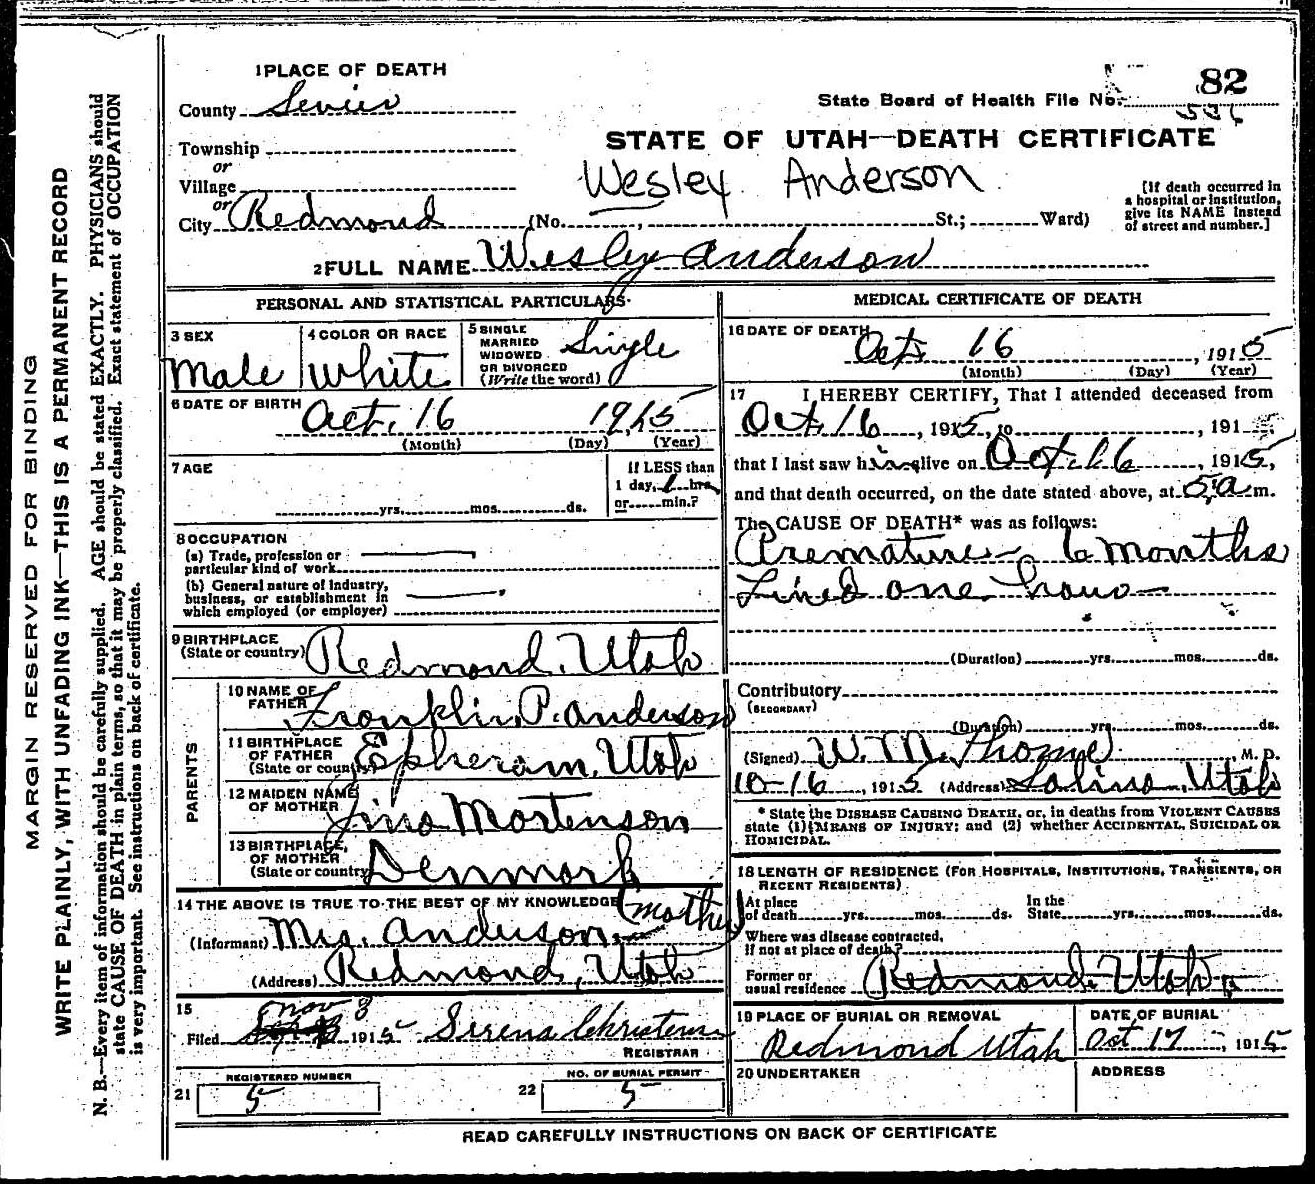 MARGIN RESERVED FOR BINDING
WRITE PLAINLY, WITH UNFADING INK—THIS IS A PERMANENT RECORD
N. B.—Every item of information should be carefully supplied. AGE should be stated EXACTLY. PHYSICIANS should
state CAUSE OF DEATH in plain terms, so that it may be properly classified. Exact statement of OCCUPATION
is very important. See instructions on back of certificate.
1 PLACE OF DEATH
County Sevier
Township
or
Village
or
City Redmond (No. , St.; Ward)
82
State Board of Health File No.
STATE OF UTAH—DEATH CERTIFICATE
Wesley Anderson
[If death occurred in
a hospital or institution,
give its NAME instead
of street and number.]
2 FULL NAME Wesley Anderson
PERSONAL AND STATISTICAL PARTICULARS
3 SEX
Male
4 COLOR OR RACE
White
5 SINGLE
MARRIED
WIDOWED
OR DIVORCED
(Write the word)
Single
6 DATE OF BIRTH
Oct. 16 1915
(Month) (Day) (Year)
7 AGE
yrs. mos. ds.
If LESS than
1 day, 1 hrs.
or min.?
8 OCCUPATION
(a) Trade, profession or
particular kind of work
(b) General nature of industry,
business, or establishment in
which employed (or employer)
9 BIRTHPLACE
(State or country)
Redmond, Utah
PARENTS
10 NAME OF
FATHER
Franklin P. Anderson
11 BIRTHPLACE
OF FATHER
(State or country)
Epheram, Utah
12 MAIDEN NAME
OF MOTHER
Mortenson
13 BIRTHPLACE,
OF MOTHER
(State or country)
Denmark
14 THE ABOVE IS TRUE TO THE BEST OF MY KNOWLEDGE
(mother)
(Informant) Mrs. Anderson
(Address) Redmond, Utah
15
Nov 3
Filed 1915
REGISTRAR
REGISTERED NUMBER
21 5
NO. OF BURIAL PERMIT
22 5
MEDICAL CERTIFICATE OF DEATH
16 DATE OF DEATH
Oct. 16, 1915
(Month) (Day) (Year)
17 I HEREBY CERTIFY, That I attended deceased from
Oct. 16, 1915, to , 191
that I last saw him alive on Oct. 16, 1915,
and that death occurred, on the date stated above, at 5 a m.
The CAUSE OF DEATH* was as follows:
Premature— 6 months
Lived one hour—
(Duration) yrs. mos. ds.
Contributory
(SECONDARY)
(Duration) yrs. mos. ds.
(Signed) W. M. , M. D.
10-16, 1915 (Address) Salina, Utah
* State the DISEASE CAUSING DEATH, or, in deaths from VIOLENT CAUSES
state (1) MEANS OF INJURY; and (2) whether ACCIDENTAL, SUICIDAL OR
HOMICIDAL.
18 LENGTH OF RESIDENCE (FOR HOSPITALS, INSTITUTIONS, TRANSIENTS, OR
RECENT RESIDENTS)
At place
of death yrs. mos. ds.
In the
State yrs. mos. ds.
Where was disease contracted,
if not at place of death?
Former or
usual residence Redmond, Utah
19 PLACE OF BURIAL OR REMOVAL
Redmond Utah
DATE OF BURIAL
Oct 17, 1915
20 UNDERTAKER
ADDRESS
READ CAREFULLY INSTRUCTIONS ON BACK OF CERTIFICATE